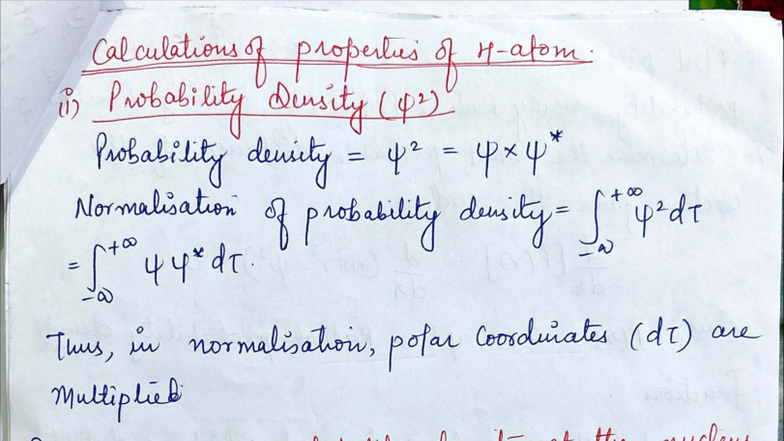 Calculations of properties of H-atom.
(i) Probability Density (ψ²)
Probability density = ψ² = ψ × ψ*
Normalisation of probability density = ∫₋∞⁺∞ ψ² dτ
= ∫₋∞⁺∞ ψ ψ* dτ.
Thus, in normalisation, polar coordinates (dτ) are
Multiplied
at the nucleus